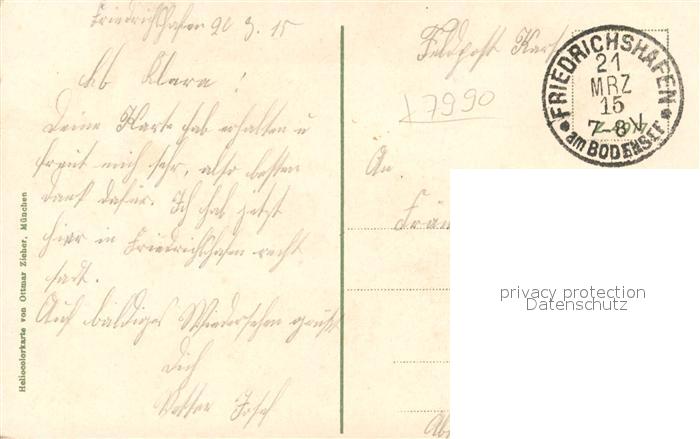 Friedrichshafen 20 3. 15
Lb Klara!
Deine Karte hab erhalten u
freut mich sehr, also besten
Dank dafür. Ich hab jetzt
hier in Friedrichshafen recht
satt.
Auf baldiges Wiedersehen grüsst
Dich
Vetter Josef
Heliocolorkarte von Ottmar Zieher, München
Feldpost Karte
FRIEDRICHSHAFEN
21
MRZ
15
7-8 V
am BODENSEE
17990
An
Frän
privacy protection
Datenschutz
Abs